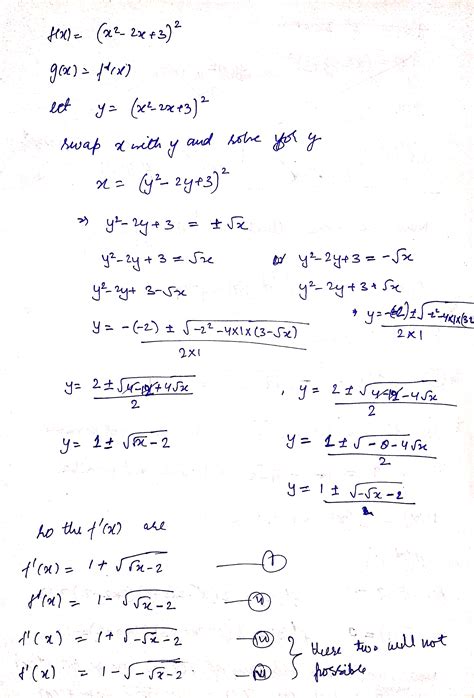 f(x) = (x² - 2x + 3)²
g(x) = f⁻¹(x)
let y = (x² - 2x + 3)²
swap x with y and solve for y
x = (y² - 2y + 3)²
⇒ y² - 2y + 3 = ± √x
y² - 2y + 3 = √x or y² - 2y + 3 = -√x
y² - 2y + 3 - √x y² - 2y + 3 + √x
y = -(-2) ± √(-2² - 4×1×(3-√x)) / 2×1 , y = -(-2) ± √(-2² - 4×1×(3+
y = 2 ± √(4-12+4√x) / 2 , y = 2 ± √(4-12-4√x) / 2
y = 1 ± √(√x - 2) y = 1 ± √(-8-4√x) / 2
y = 1 ± √(-√x - 2)
so the f'(x) are
f'(x) = 1 + √(√x - 2) — I
f'(x) = 1 - √(√x - 2) — II
f'(x) = 1 + √(-√x - 2) — III } these two will not
f'(x) = 1 - √(-√x - 2) — IV possible